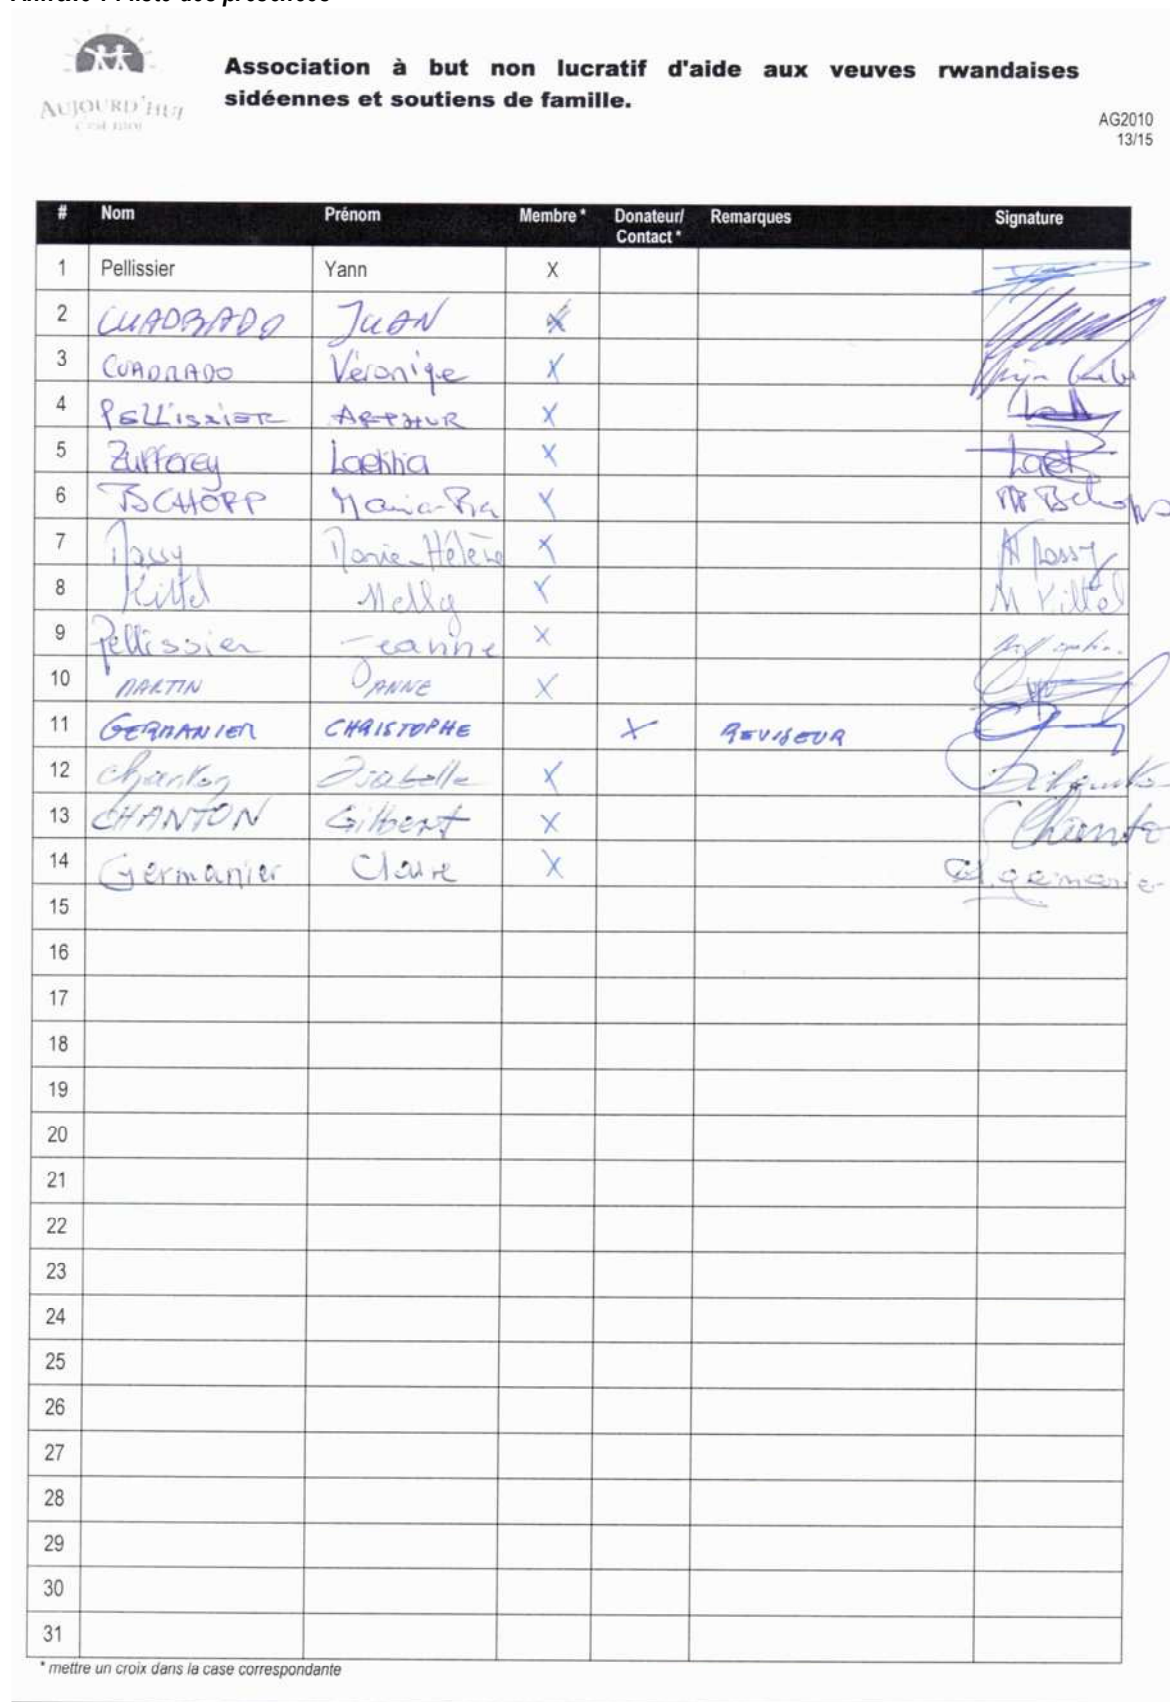 AUJOURD'HUI
c'est moi
Association à but non lucratif d'aide aux veuves rwandaises
sidéennes et soutiens de famille.
AG2010
13/15
# Nom Prénom Membre * Donateur/ Contact * Remarques Signature
1 Pellissier Yann X
2 CUADRADO JUAN X
3 CUADRADO Véronique X
4 PELLISSIER ARTHUR X
5 Zufferey Laetitia X
6 TSCHOPP Maria-Pia X
7 Marie-Hélène X
8 Kittel Nelly X M Kittel
9 Pellissier Jeanne X
10 MARTIN ANNE X
11 GERMANIER CHRISTOPHE X REVISEUR
12 Chanton Isabelle X
13 CHANTON Gilbert X
14 Germanier Claire X
15
16
17
18
19
20
21
22
23
24
25
26
27
28
29
30
31
* mettre un croix dans la case correspondante